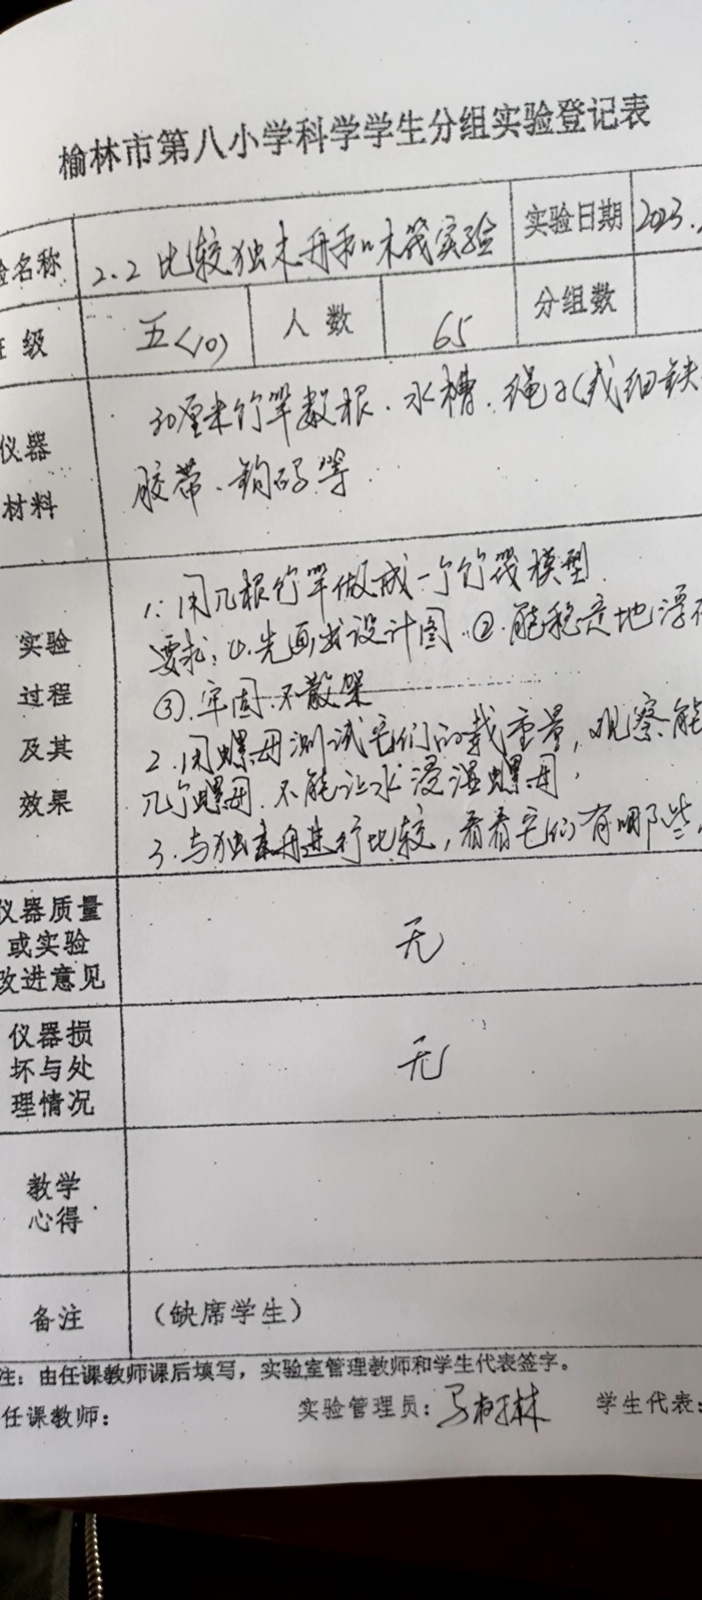 榆林市第八小学科学学生分组实验登记表
验名称 2.2 比较独木舟和木筏实验 实验日期 2023.
级 五<10> 人数 65 分组数
仪器材料
30厘米竹竿数根、水槽、绳子(或细铁
胶带、钩码等
实验过程及其效果
1. 用几根竹竿做成一个竹筏模型
要求:①.先画出设计图.②.能稳定地浮在
③.牢固.不散架
2.用螺母测试它们的载重量,观察能
几个螺母.不能让水浸湿螺母.
3.与独木舟进行比较,看看它们有哪些
仪器质量或实验改进意见
无
仪器损坏与处理情况
无
教学心得
备注 (缺席学生)
注:由任课教师课后填写,实验室管理教师和学生代表签字。
任课教师: 实验管理员: 学生代表: